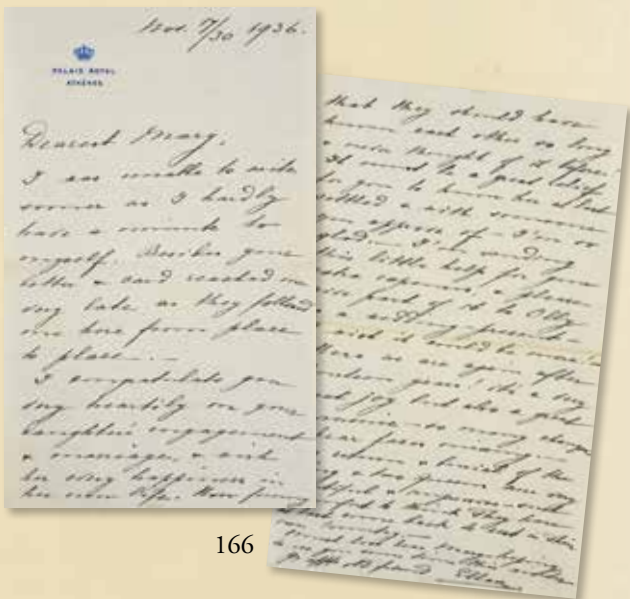 Nov. 7/20 1936.
PALAIS ROYAL
ATHÈNES
Dearest Mary,
I was unable to write
sooner as I hardly
have a minute to
myself. Besides your
letter & card reached me
very late as they followed
me here from place
to place. —
I congratulate you
very heartily on your
daughter's engagement
& marriage, & wish
her every happiness in
her new life. How funny
that they should have
known each other so long
& never thought of it before.
It must be a great relief
for you to know her at last
settled & with someone
you approve of — I'm so
glad. — I'm sending
this little help for your
extra expenses, & please
give part of it to Olly
as a wedding present —
I wish it could be more.
Here we are again after
years, it's a very
great joy but also a great
so many changes
dear faces missing —
& two Queens are
to think they have
come back to rest in their
own country
Ellen
166